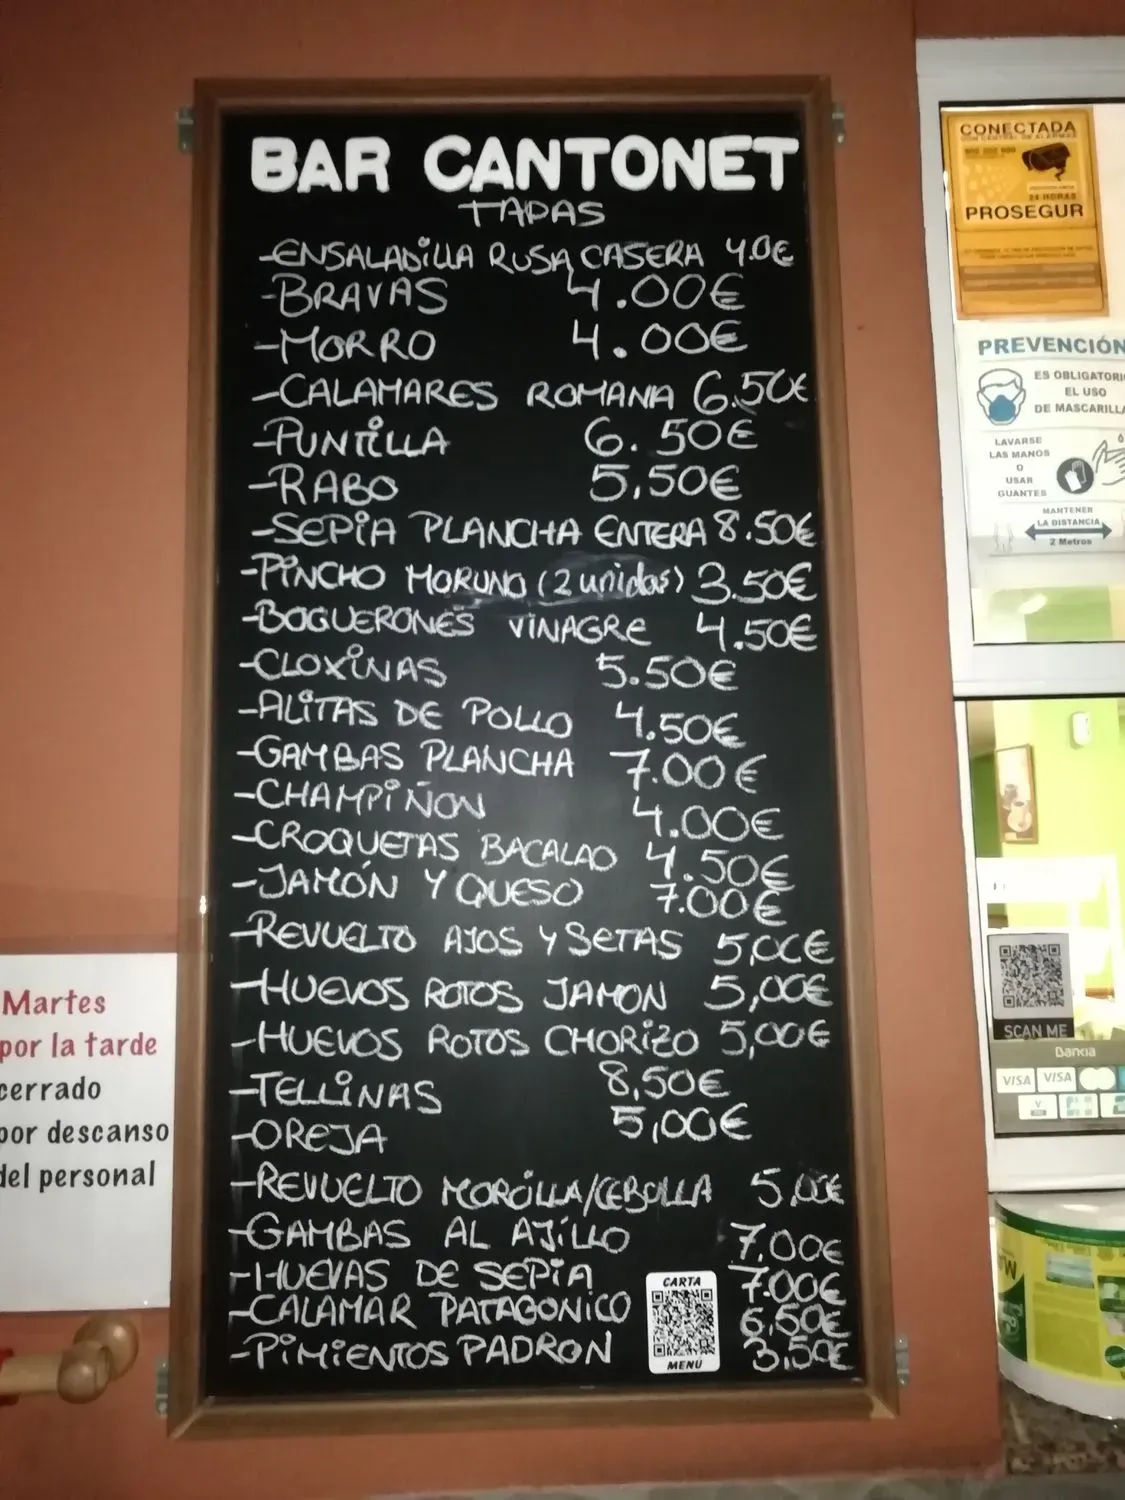 BAR CANTONET
TAPAS
-ENSALADILLA RUSA CASERA 4.0€
-BRAVAS 4.00€
-MORRO 4.00€
-CALAMARES ROMANA 6.50€
-PUNTILLA 6.50€
-RABO 5,50€
-SEPIA PLANCHA ENTERA 8.50€
-PINCHO MORUNO (2 unidas) 3.50€
-BOQUERONES VINAGRE 4.50€
-CLOXINAS 5.50€
-ALITAS DE POLLO 4.50€
-GAMBAS PLANCHA 7.00€
-CHAMPIÑON 4.00€
-CROQUETAS BACALAO 4.50€
-JAMÓN Y QUESO 7.00€
-REVUELTO AJOS Y SETAS 5,00€
-HUEVOS ROTOS JAMON 5,00€
-HUEVOS ROTOS CHORIZO 5,00€
-TELLINAS 8,50€
-OREJA 5,00€
-REVUELTO MORCILLA/CEBOLLA 5,00€
-GAMBAS AL AJILLO 7,00€
-HUEVAS DE SEPIA 7.00€
-CALAMAR PATAGONICO 6,50€
-PIMIENTOS PADRON 3,50€
CARTA
MENÚ
Martes
por la tarde
cerrado
por descanso
del personal
CONECTADA
CON CENTRAL DE ALARMAS
24 HORAS
PROSEGUR
PREVENCIÓN
ES OBLIGATORI
EL USO
DE MASCARILLA
LAVARSE
LAS MANOS
O
USAR
GUANTES
MANTENER
LA DISTANCIA
2 Metros
SCAN ME
Bankia
VISA VISA